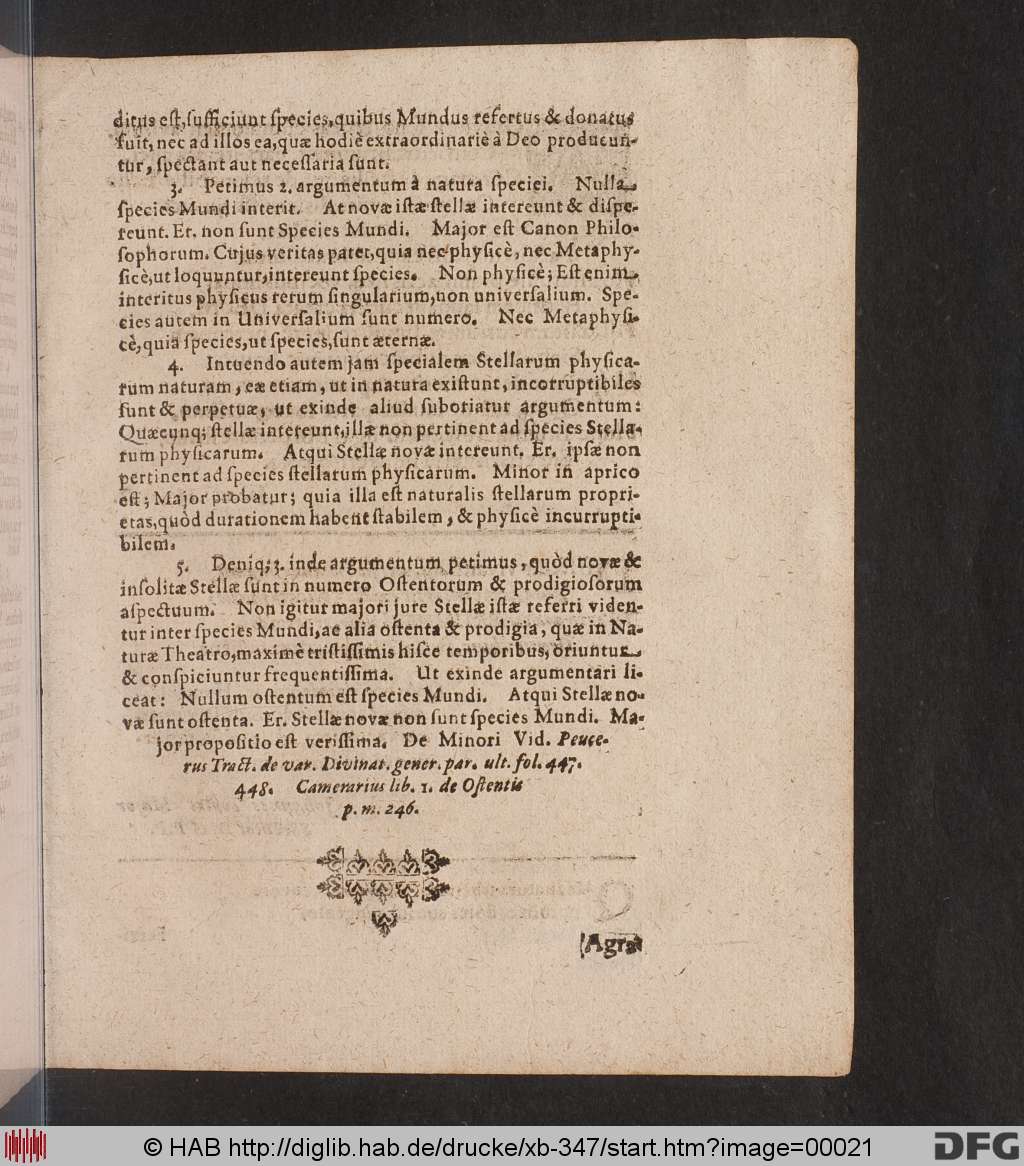 ditus est, sufficiunt species, quibus Mundus refertus & donatus
fuit, nec ad illos ea, quæ hodiè extraordinariè à Deo producun-
tur, spectant aut necessaria sunt.
3. Petimus 2. argumentum à natura speciei. Nulla
species Mundi interit. At novæ istæ stellæ intereunt & dispe-
reunt. Er. non sunt Species Mundi. Major est Canon Philo-
sophorum. Cujus veritas patet, quia nec physicè, nec Metaphy-
sicè, ut loquuntur, intereunt species. Non physicè; Est enim
interitus physicus rerum singularium, non universalium. Spe-
cies autem in Universalium sunt numero. Nec Metaphysi-
cè, quia species, ut species, sunt æternæ.
4. Intuendo autem jam specialem Stellarum physica-
rum naturam, eæ etiam, ut in natura existunt, incorruptibiles
sunt & perpetuæ, ut exinde aliud suboriatur argumentum:
Quæcunq; stellæ intereunt, illæ non pertinent ad species Stella-
rum physicarum. Atqui Stellæ novæ intereunt. Er. ipsæ non
pertinent ad species stellarum physicarum. Minor in aprico
est; Major probatur; quia illa est naturalis stellarum propri-
etas, quòd durationem habent stabilem, & physicè incurrupti-
bilem.
5. Deniq; 3. inde argumentum petimus, quòd novæ &
insolitæ Stellæ sunt in numero Ostentorum & prodigiosorum
aspectuum. Non igitur majori jure Stellæ istæ referri viden-
tur inter species Mundi, ac alia ostenta & prodigia, quæ in Na-
turæ Theatro, maximè tristissimis hisce temporibus, oriuntur
& conspiciuntur frequentissima. Ut exinde argumentari li-
ceat: Nullum ostentum est species Mundi. Atqui Stellæ no-
væ sunt ostenta. Er. Stellæ novæ non sunt species Mundi. Ma-
jor propositio est verissima. De Minori Vid. Peuce-
rus Tract. de var. Divinat. gener. par. ult. fol. 447.
448. Camerarius lib. 1. de Ostentis
p. m. 246.
(Agra
© HAB http://diglib.hab.de/drucke/xb-347/start.htm?image=00021
DFG